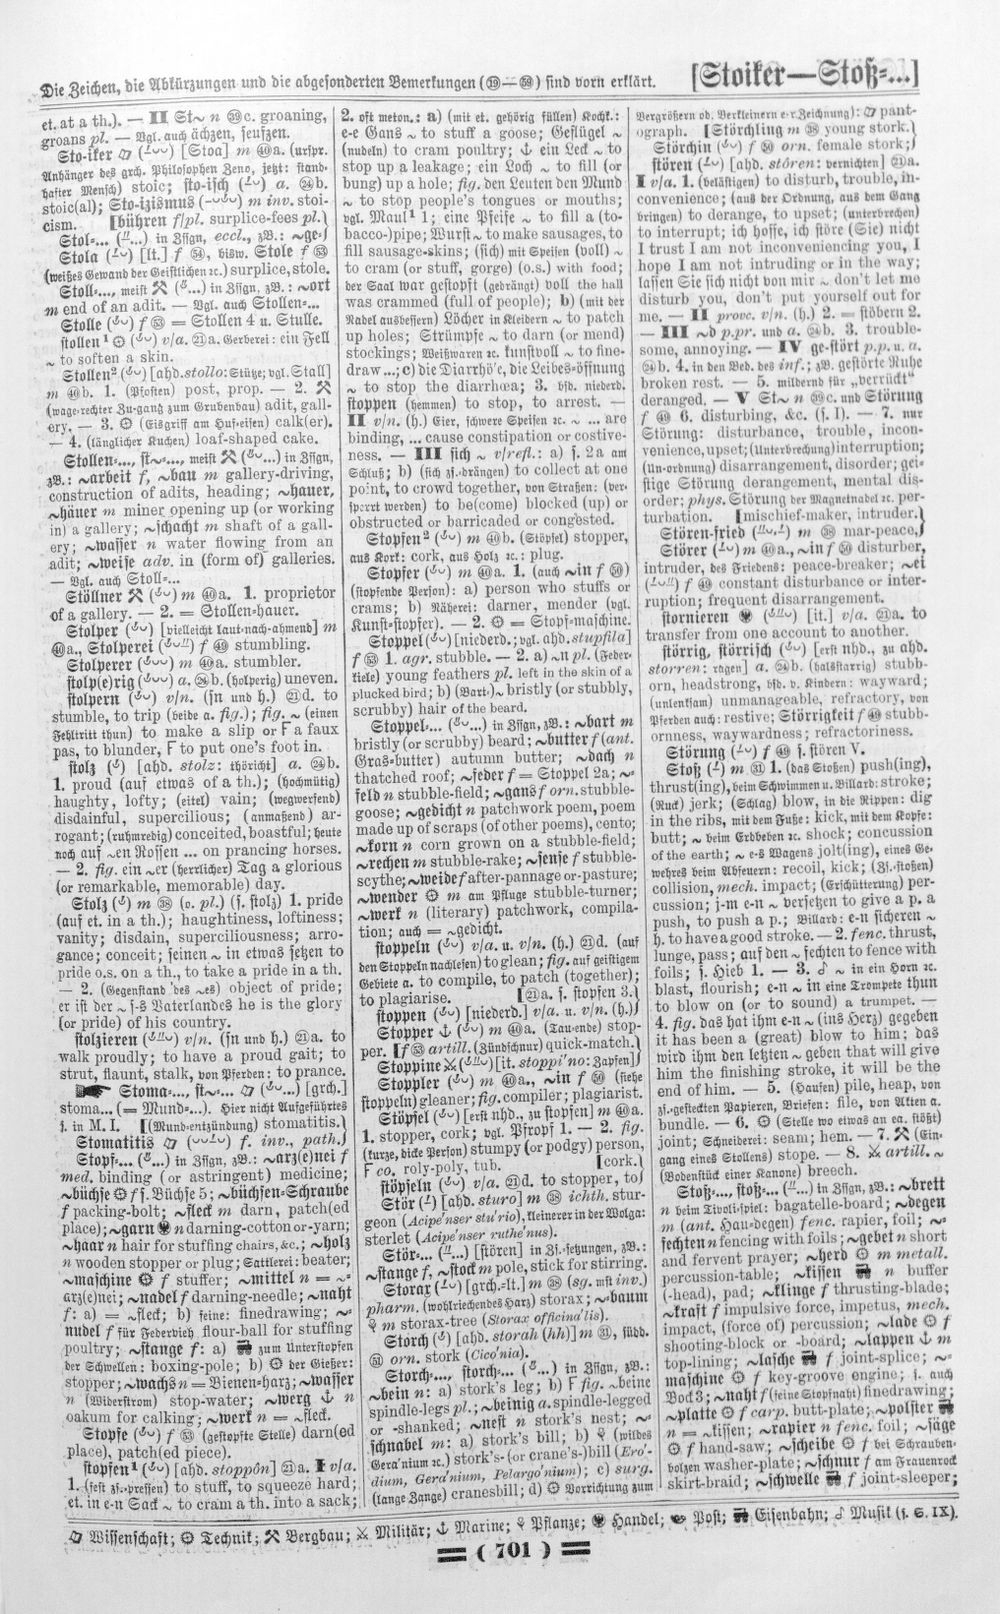 Die Zeichen, die Abkürzungen und die abgesonderten Bemerkungen (⑲—㊾) sind vorn erklärt.
[Stoiker—Stoß=...]
et. at a th.). — II St~ n ㊴c. groaning,
groans pl. — Vgl. auch ächzen, seufzen.
Sto-iker (⏑–⏑⏑) [Stoa] m ㊵a. (urspr.
Anhänger des grch. Philosophen Zeno, jetzt: stand-
hafter Mensch) stoic; sto-isch a. ㉔b.
stoic(al); Sto-izismus m inv. stoi-
cism. [bühren f/pl. surplice-fees pl.
Stol=... in Zssgn, eccl., zB.: ~ge-
Stola [lt.] f, bisw. Stole f
(weißes Gewand der Geistlichen ꝛc.) surplice, stole.
Stoll=..., meist ⚒ in Zssgn, zB.: ~ort
m end of an adit. — Vgl. auch Stollen=...
Stolle f = Stollen 4 u. Stulle.
stollen¹ v/a. ㉑a. Gerberei: ein Fell
~ to soften a skin.
Stollen² [ahd. stollo: Stütze; vgl. Stall]
m ㊵b. 1. (Pfosten) post, prop. — 2. ⚒
(wage-rechter Zu-gang zum Grubenbau) adit, gall-
ery. — 3. (Eisgriff am Huf-eisen) calk(er).
— 4. (länglicher Kuchen) loaf-shaped cake.
Stollen=..., st~=..., meist ⚒ in Zssgn,
zB.: ~arbeit f, ~bau m gallery-driving,
construction of adits, heading; ~hauer,
~häuer m miner opening up (or working
in) a gallery; ~schacht m shaft of a gall-
ery; ~wasser n water flowing from an
adit; ~weise adv. in (form of) galleries.
— Vgl. auch Stoll=...
Stöllner ⚒ m ㊵a. 1. proprietor
of a gallery. — 2. = Stollen-hauer.
Stolper [vielleicht laut-nach-ahmend] m
㊵a., Stolperei f ㊾ stumbling.
Stolperer m ㊵a. stumbler.
stolp(e)rig a. ㉔b. (holperig) uneven.
stolpern v/n. (sn und h.) ㉑d. to
stumble, to trip (beide a. fig.); fig. ~ (einen
Fehltritt thun) to make a slip or F a faux
pas, to blunder, F to put one's foot in.
stolz [ahd. stolz: thöricht] a. ㉔b.
1. proud (auf etwas of a th.); (hochmütig)
haughty, lofty; (eitel) vain; (wegwerfend)
disdainful, supercilious; (anmaßend) ar-
rogant; (ruhmredig) conceited, boastful; heute
noch auf ~en Rossen ... on prancing horses.
— 2. fig. ein ~er (herrlicher) Tag a glorious
(or remarkable, memorable) day.
Stolz m ㊳ (o. pl.) (s. stolz) 1. pride
(auf et. in a th.); haughtiness, loftiness;
vanity; disdain, superciliousness; arro-
gance; conceit; seinen ~ in etwas setzen to
pride o.s. on a th., to take a pride in a th.
— 2. (Gegenstand des ~es) object of pride;
er ist der ~ s-s Vaterlandes he is the glory
(or pride) of his country.
stolzieren v/n. (sn und h.) ㉑a. to
walk proudly; to have a proud gait; to
strut, flaunt, stalk, von Pferden: to prance.
☛ Stoma=..., st~=... [grch.]
stoma... (= Mund=...). Hier nicht Aufgeführtes
s. in M. I. [(Mund-entzündung) stomatitis.
Stomatitis f. inv., path.
Stopf=... in Zssgn, zB.: ~arz(e)nei f
med. binding (or astringent) medicine;
~büchse f s. Büchse 5; ~büchsen-Schraube
f packing-bolt; ~fleck m darn, patch(ed
place); ~garn n darning-cotton or -yarn;
~haar n hair for stuffing chairs, &c.; ~holz
n wooden stopper or plug; Sattlerei: beater;
~maschine f stuffer; ~mittel n = ~-
arz(e)nei; ~nadel f darning-needle; ~naht
f: a) = ~fleck; b) feine: finedrawing; ~-
nudel f für Federvieh flour-ball for stuffing
poultry; ~stange f: a) zum Unterstopfen
der Schwellen: boxing-pole; b) der Gießer:
stopper; ~wachs n = Bienen-harz; ~wasser
n (Widerstrom) stop-water; ~werg ⚓ n
oakum for calking; ~werk n = ~fleck.
Stopfe f (gestopfte Stelle) darn(ed
place), patch(ed piece).
stopfen¹ [ahd. stoppôn] ㉑a. I v/a.
1. (fest zs.-pressen) to stuff, to squeeze hard;
et. in e-n Sack ~ to cram a th. into a sack;
2. oft meton.: a) (mit et. gehörig füllen) Kochk.:
e-e Gans ~ to stuff a goose; Geflügel ~
(nudeln) to cram poultry; ⚓ ein Leck ~ to
stop up a leakage; ein Loch ~ to fill (or
bung) up a hole; fig. den Leuten den Mund
~ to stop people's tongues or mouths;
vgl. Maul¹ 1; eine Pfeife ~ to fill a (to-
bacco-)pipe; Wurst ~ to make sausages, to
fill sausage-skins; (sich) mit Speisen (voll) ~
to cram (or stuff, gorge) (o.s.) with food;
der Saal war gestopft (gedrängt) voll the hall
was crammed (full of people); b) (mit der
Nadel ausbessern) Löcher in Kleidern ~ to patch
up holes; Strümpfe ~ to darn (or mend)
stockings; Weißwaren ꝛc. kunstvoll ~ to fine-
draw...; c) die Diarrhö'e, die Leibes-öffnung
~ to stop the diarrhœa; 3. bsd. niederd.
stoppen (hemmen) to stop, to arrest. —
II v/n. (h.) Eier, schwere Speisen ꝛc. ~ ... are
binding, ... cause constipation or costive-
ness. — III sich ~ v/refl.: a) s. 2a am
Schluß; b) (sich zs.-drängen) to collect at one
point, to crowd together, von Straßen: (ver-
sperrt werden) to be(come) blocked (up) or
obstructed or barricaded or congested.
Stopfen² m ㊵b. (Stöpsel) stopper,
aus Kork: cork, aus Holz ꝛc.: plug.
Stopfer m ㊵a. 1. (auch ~in f ㊿)
(stopfende Person): a) person who stuffs or
crams; b) Näherei: darner, mender (vgl.
Kunst-stopfer). — 2. = Stopf-maschine.
Stoppel [niederd.; vgl. ahd. stupfila]
f 1. agr. stubble. — 2. a) ~n pl. (Feder-
kiele) young feathers pl. left in the skin of a
plucked bird; b) (Bart-)~ bristly (or stubbly,
scrubby) hair of the beard.
Stoppel=... in Zssgn, zB.: ~bart m
bristly (or scrubby) beard; ~butter f (ant.
Gras=butter) autumn butter; ~dach n
thatched roof; ~feder f = Stoppel 2a; ~-
feld n stubble-field; ~gans f orn. stubble-
goose; ~gedicht n patchwork poem, poem
made up of scraps (of other poems), cento;
~korn n corn grown on a stubble-field;
~rechen m stubble-rake; ~sense f stubble-
scythe; ~weide f after-pannage or -pasture;
~wender m am Pfluge stubble-turner;
~werk n (literary) patchwork, compila-
tion; auch = ~gedicht.
stoppeln v/a. u. v/n. (h.) ㉑d. (auf
den Stoppeln nachlesen) to glean; fig. auf geistigem
Gebiete a. to compile, to patch (together);
to plagiarise. [㉑a. s. stopfen 3.
stoppen [niederd.] v/a. u. v/n. (h.)
Stopper ⚓ m ㊵a. (Tau-ende) stop-
per. [f artill. (Zündschnur) quick-match.
Stoppine ⚔ [it. stoppi'no: Zapfen]
Stoppler m ㊵a., ~in f ㊿ (siehe
stoppeln) gleaner; fig. compiler; plagiarist.
Stöpsel [erst nhd., zu stopfen] m ㊵a.
1. stopper, cork; vgl. Pfropf 1. — 2. fig.
(kurze, dicke Person) stumpy (or podgy) person,
F co. roly-poly, tub. [cork.
stöpseln v/a. ㉑d. to stopper, to
Stör [ahd. sturo] m ㊳ ichth. stur-
geon (Acipe'nser stu'rio), kleinerer in der Wolga:
sterlet (Acipe'nser ruthe'nus).
Stör=... [stören] in Zs.-setzungen, zB.:
~stange f, ~stock m pole, stick for stirring.
Storax [grch.-lt.] m ㊳ (sg. mst inv.)
pharm. (wohlriechendes Harz) storax; ~baum
m storax-tree (Storax officina'lis).
Storch [ahd. storah (hh)] m, südd.
orn. stork (Cico'nia).
Storch=..., storch=... in Zssgn, zB.:
~bein n: a) stork's leg; b) F fig. ~beine
spindle-legs pl.; ~beinig a. spindle-legged
or -shanked; ~nest n stork's nest; ~-
schnabel m: a) stork's bill; b) (wildes
Gera'nium ꝛc.) stork's- (or crane's-)bill (Ero'-
dium, Gera'nium, Pelargo'nium); c) surg.
(lange Zange) cranesbill; d) Vorrichtung zum
Vergrößern ob. Verkleinern e-r Zeichnung): pant-
ograph. [Störchling m ㊳ young stork.
Störchin f ㊿ orn. female stork;
stören [ahd. stôren: vernichten] ㉑a.
I v/a. 1. (belästigen) to disturb, trouble, in-
convenience; (aus der Ordnung, aus dem Gang
bringen) to derange, to upset; (unterbrechen)
to interrupt; ich hoffe, ich störe (Sie) nicht
I trust I am not inconveniencing you, I
hope I am not intruding or in the way;
lassen Sie sich nicht von mir ~ don't let me
disturb you, don't put yourself out for
me. — II provc. v/n. (h.) 2. = stöbern 2.
— III ~d p.pr. und a. ㉔b. 3. trouble-
some, annoying. — IV ge-stört p.p. u. a.
㉔b. 4. in den Bed. des inf.; zB. gestörte Ruhe
broken rest. — 5. mildernd für „verrückt"
deranged. — V St~ n ㊴c. und Störung
f ㊾ 6. disturbing, &c. (s. I). — 7. nur
Störung: disturbance, trouble, incon-
venience, upset; (Unterbrechung) interruption;
(Un-ordnung) disarrangement, disorder; gei-
stige Störung derangement, mental dis-
order; phys. Störung der Magnetnadel ꝛc. per-
turbation. [mischief-maker, intruder.
Stören-fried m ㊳ mar-peace,
Störer m ㊵a., ~in f ㊿ disturber,
intruder, des Friedens: peace-breaker; ~ei
f ㊾ constant disturbance or inter-
ruption; frequent disarrangement.
stornieren [it.] v/a. ㉑a. to
transfer from one account to another.
störrig, störrisch [erst nhd., zu ahd.
storren: ragen] a. ㉔b. (halsstarrig) stubb-
orn, headstrong, bsd. v. Kindern: wayward;
(unlenksam) unmanageable, refractory, von
Pferden auch: restive; Störrigkeit f ㊾ stubb-
ornness, waywardness; refractoriness.
Störung f ㊾ s. stören V.
Stoß m 1. (das Stoßen) push(ing),
thrust(ing), beim Schwimmen u. Billard: stroke;
(Ruck) jerk; (Schlag) blow, in die Rippen: dig
in the ribs, mit dem Fuße: kick, mit dem Kopfe:
butt; ~ beim Erdbeben ꝛc. shock; concussion
of the earth; ~ e-s Wagens jolt(ing), eines Ge-
wehres beim Abfeuern: recoil, kick; (Zs.-stoßen)
collision, mech. impact; (Erschütterung) per-
cussion; j-m e-n ~ versetzen to give a p. a
push, to push a p.; Billard: e-n sicheren ~
h. to have a good stroke. — 2. fenc. thrust,
lunge, pass; auf den ~ fechten to fence with
foils; s. Hieb 1. — 3. ♪ ~ in ein Horn ꝛc.
blast, flourish; e-n ~ in eine Trompete thun
to blow on (or to sound) a trumpet. —
4. fig. das hat ihm e-n ~ (ins Herz) gegeben
it has been a (great) blow to him; das
wird ihm den letzten ~ geben that will give
him the finishing stroke, it will be the
end of him. — 5. (Haufen) pile, heap, von
zs.-gesteckten Papieren, Briefen: file, von Akten a.
bundle. — 6. (Stelle wo etwas an ea. stößt)
joint; Schneiderei: seam; hem. — 7. ⚒ (Ein-
gang eines Stollens) stope. — 8. ⚔ artill. ~
(Bodenstück einer Kanone) breech.
Stoß=..., stoß=... in Zssgn, zB.: ~brett
n beim Tivoli-spiel: bagatelle-board; ~degen
m (ant. Hau=degen) fenc. rapier, foil; ~-
fechten n fencing with foils; ~gebet n short
and fervent prayer; ~herd m metall.
percussion-table; ~kissen n buffer
(-head), pad; ~klinge f thrusting-blade;
~kraft f impulsive force, impetus, mech.
impact, (force of) percussion; ~lade f
shooting-block or -board; ~lappen ⚓ m
top-lining; ~lasche f joint-splice; ~-
maschine f key-groove engine; s. auch
Bock 3; ~naht f (feine Stopfnaht) finedrawing;
~platte f carp. butt-plate; ~polster
n = ~kissen; ~rapier n fenc. foil; ~säge
f hand-saw; ~scheibe f bei Schrauben-
bolzen washer-plate; ~schnur f am Frauenrock
skirt-braid; ~schwelle f joint-sleeper;
Wissenschaft; Technik; ⚒ Bergbau; ⚔ Militär; ⚓ Marine; Pflanze; Handel; Post; Eisenbahn; ♪ Musik (s. S. IX).
= ( 701 ) =